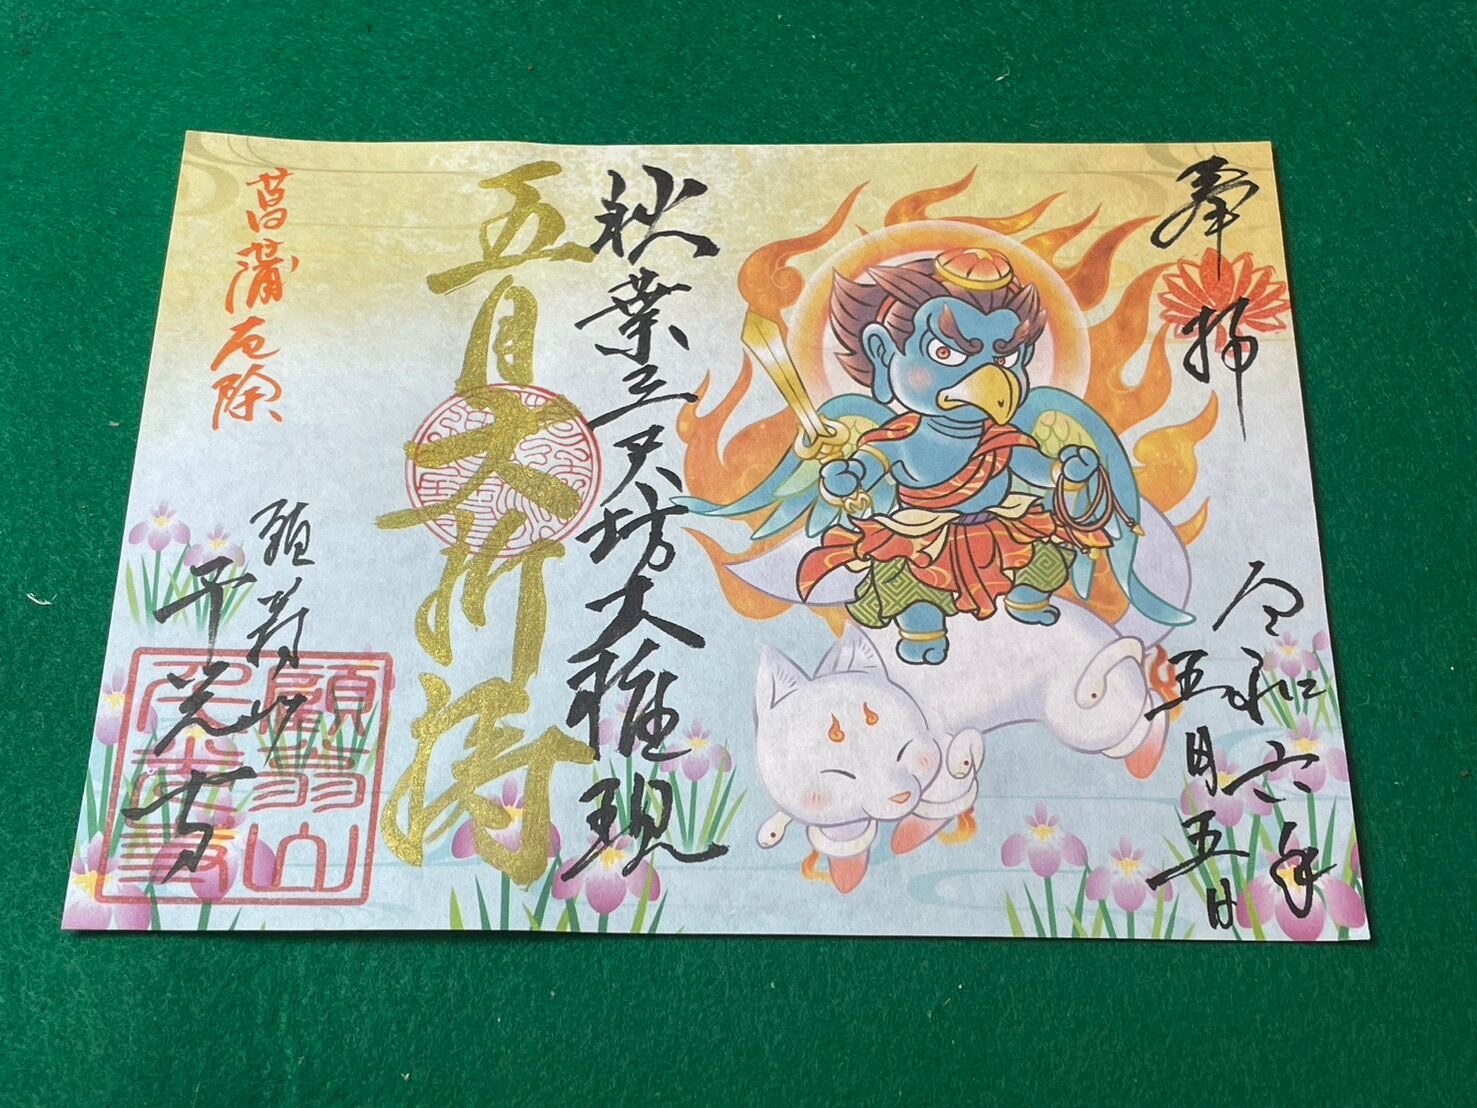 奉拝
令和六年
五月五日
秋葉三尺坊大権現
五月大祈祷
菖蒲厄除
顕翁山
千光寺
顕翁山